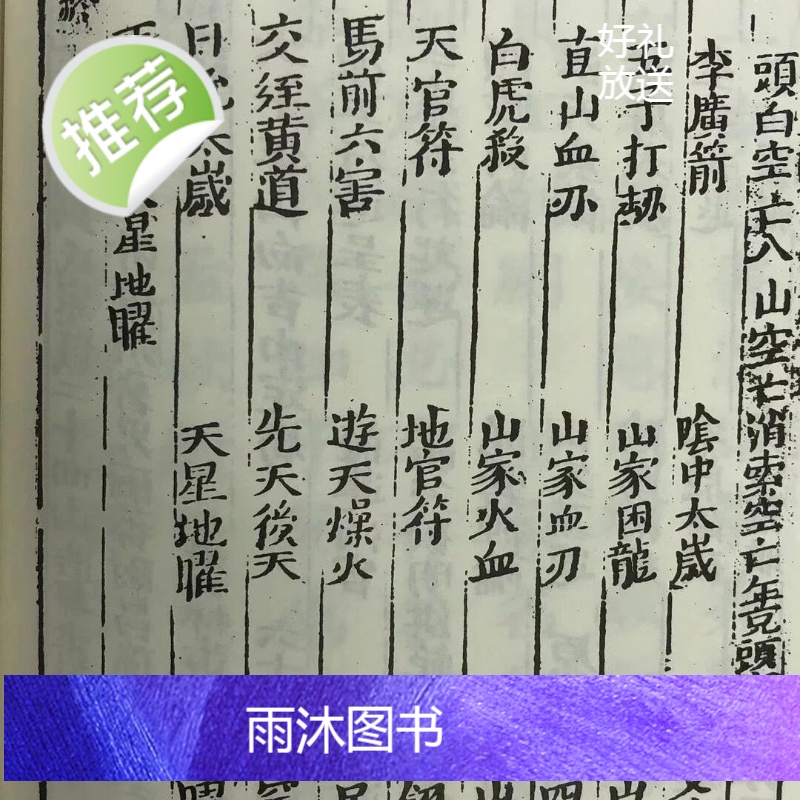 頭白空亡八山空亡消索空亡年克頭
李廣箭
陰中太歲
打劫
山家困龍
直山血刃
山家血刃
白虎殺
山家火血
天官符
地官符
馬前六害
遊天燥火
交經黃道
先天後天
太歲
天星地曜
星地曜
推荐
好礼
放送
雨沐图书